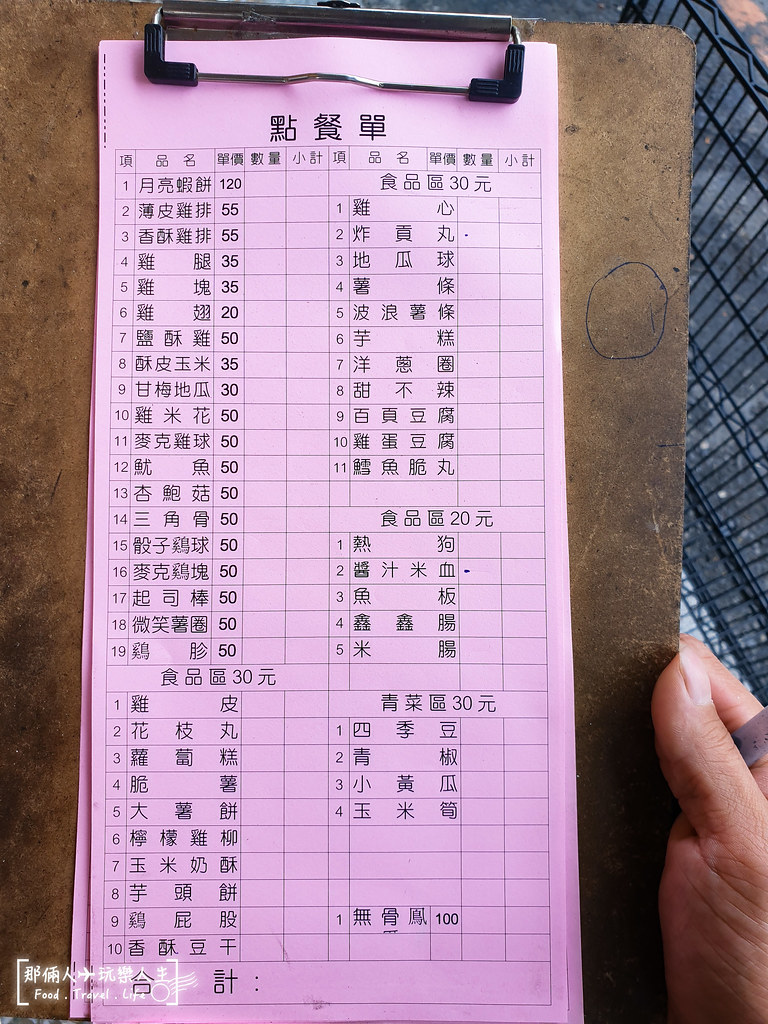 點餐單
項 品名 單價 數量 小計 項 品名 單價 數量 小計
1 月亮蝦餅 120 食品區30元
2 薄皮雞排 55 1 雞心
3 香酥雞排 55 2 炸貢丸
4 雞腿 35 3 地瓜球
5 雞塊 35 4 薯條
6 雞翅 20 5 波浪薯條
7 鹽酥雞 50 6 芋糕
8 酥皮玉米 35 7 洋蔥圈
9 甘梅地瓜 30 8 甜不辣
10 雞米花 50 9 百頁豆腐
11 麥克雞球 50 10 雞蛋豆腐
12 魷魚 50 11 鱈魚脆丸
13 杏鮑菇 50
14 三角骨 50 食品區20元
15 骰子鷄球 50 1 熱狗
16 麥克鷄塊 50 2 醬汁米血
17 起司棒 50 3 魚板
18 微笑薯圈 50 4 鑫鑫腸
19 鷄胗 50 5 米腸
食品區30元
1 雞皮 青菜區30元
2 花枝丸 1 四季豆
3 蘿蔔糕 2 青椒
4 脆薯 3 小黃瓜
5 大薯餅 4 玉米筍
6 檸檬雞柳
7 玉米奶酥
8 芋頭餅
9 鷄屁股 1 無骨鳳 100
10 香酥豆干
合計：
那倆人玩樂人生
Food . Travel . Life